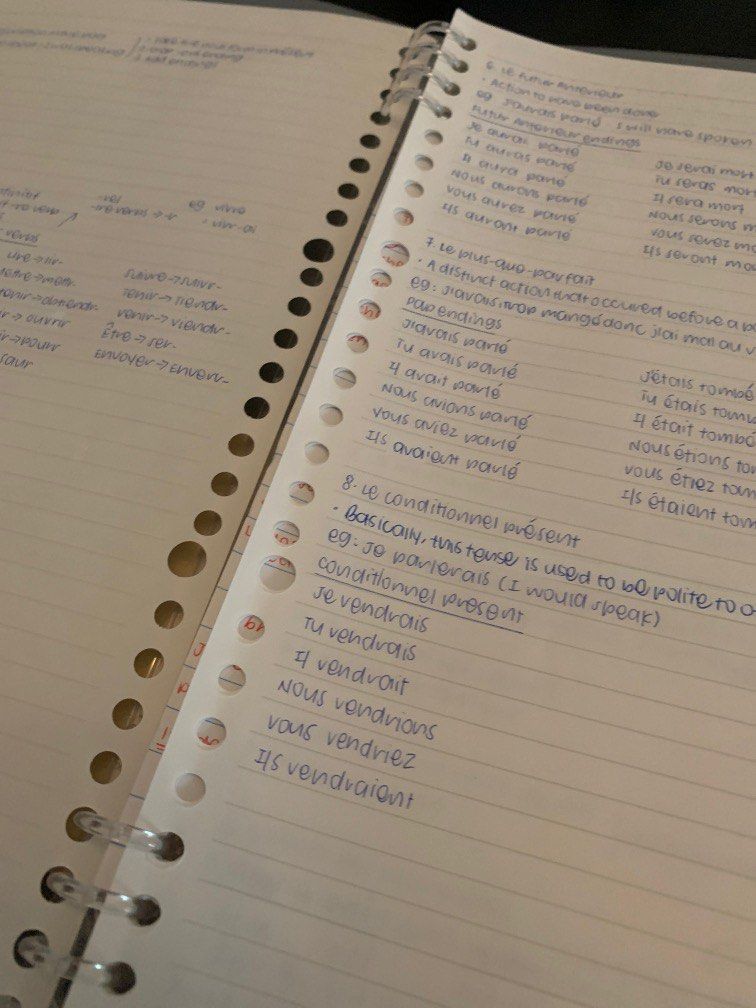 eg vivre
-re verbs → r
→ vivr-ai
verbs
lire → lir-
suivre → suivr-
mettre → mettr-
tenir → tiendr-
obtenir → obtiendr-
venir → viendr-
→ ouvrir
Être → ser-
→ pourr
Envoyer → Enverr-
saur
3. add endings
6. Le futur Anterieur
• Action to have been done
eg J'aurais parlé I will have spoken
Futur Anterieur endings
Je aurai parlé
Je serai mort
Tu auras parlé
Tu seras mort
Il aura parlé
Il sera mort
Nous aurons parlé
Nous serons m
Vous aurez parlé
Vous serez mo
Ils auront parlé
Ils seront mo
7. Le plus-que-parfait
• A distinct action that occured before a
eg: J'avais trop mangé donc j'ai mal au v
PQP endings
J'avais parlé
J'étais tombé
Tu avais parlé
Tu étais tom
Il avait parlé
Il était tombé
Nous avions parlé
Nous étions to
Vous aviez parlé
Vous étiez tom
Ils avaient parlé
Ils étaient tom
8. Le conditionnel présent
• Basically, this tense is used to be polite to o
eg: Je parlerais (I would speak)
conditionnel present
Je vendrais
Tu vendrais
Il vendrait
Nous vendrions
Vous vendriez
Ils vendraient